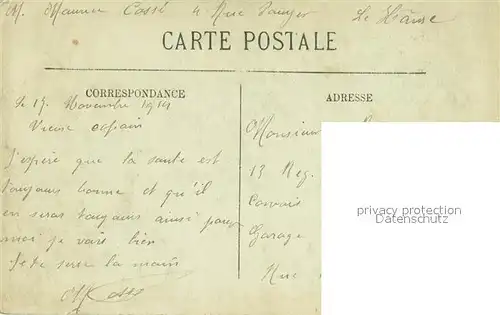 M. Maurice Cossé 4 Rue
CARTE POSTALE
CORRESPONDANCE
ADRESSE
Le 17 Novembre 1914
Vieux copain
J'espère que la sante est
toujours bonne et qu'il
en seras toujours ainsi pour
moi je vais bien
Je te serre la main
Monsieur
13 Reg.
Convois
Garage
Rue
privacy protection
Datenschutz